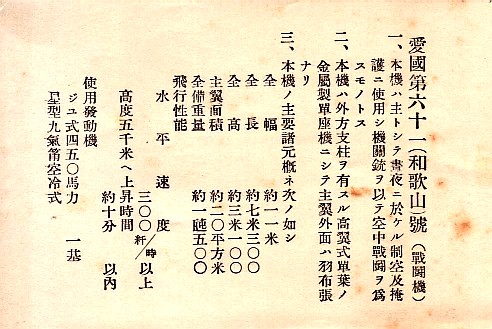 愛國第六十一(和歌山)號(戰鬪機)
一、本機ハ主トシテ晝夜ニ於ケル制空及掩
護ニ使用シ機關銃ヲ以テ空中戰鬪ヲ爲
スモノトス
二、本機ハ外方支柱ヲ有スル高翼式單葉ノ
金屬製單座機ニシテ主翼外面ハ羽布張
ナリ
三、本機ノ主要諸元概ネ次ノ如シ
全幅 約一一米
全長 約七米三〇〇
全高 約三米一〇〇
主翼面積 約二〇平方米
全備重量 約一瓲五〇〇
飛行性能
水平速度 三〇〇粁/時以上
高度五千米ヘ上昇時間 約十分以內
使用發動機
ジユ式四五〇馬力 一基
星型九氣筩空冷式